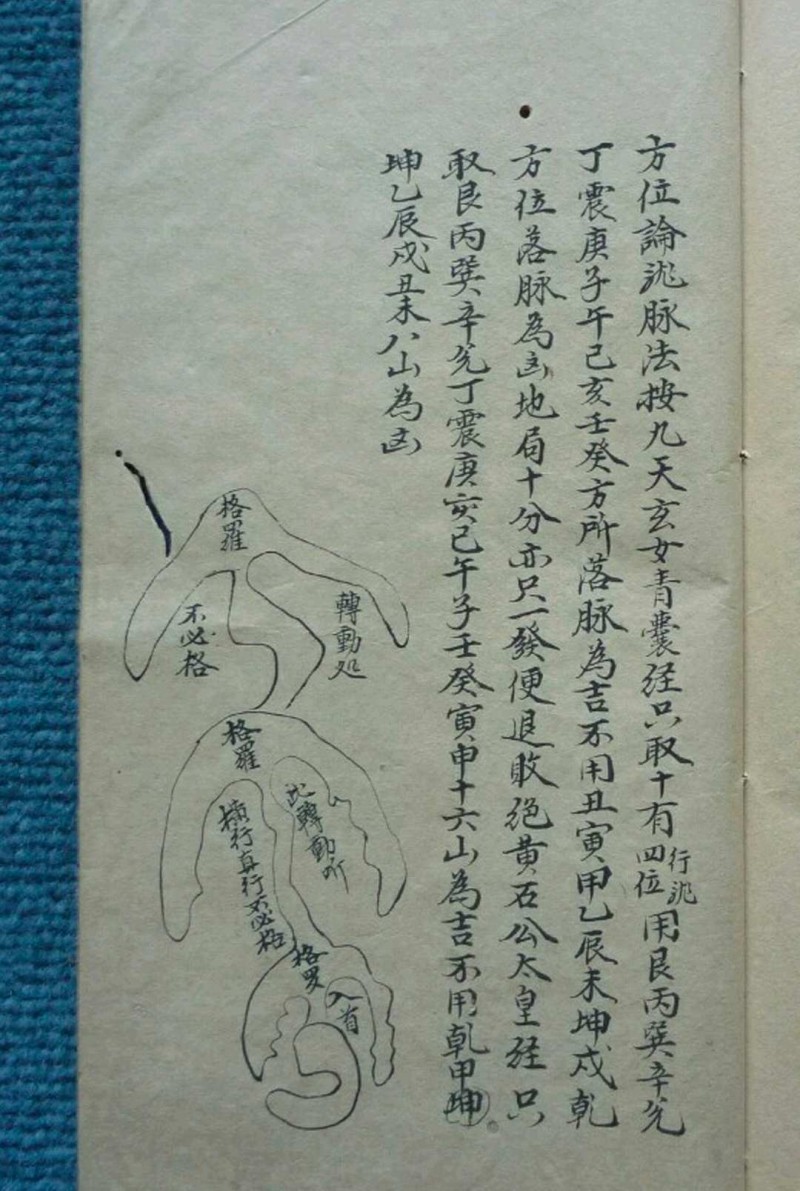 方位論㳀脉法按九天玄女青囊経只取十有四位行㳀用艮丙巽辛兊
丁震庚子午己亥壬癸方所落脉為吉不用丑寅甲乙辰未坤戌乾
方位落脉為凶地局十分亦只一發便退敗絕黄石公太皇経只
取艮丙巽辛兊丁震庚亥己午子壬癸寅申十六山為吉不用乾甲坤
坤乙辰戌丑未八山為凶
格羅
轉動処
不必格
格羅
此轉動所
横行直行不必格
格罗
入首